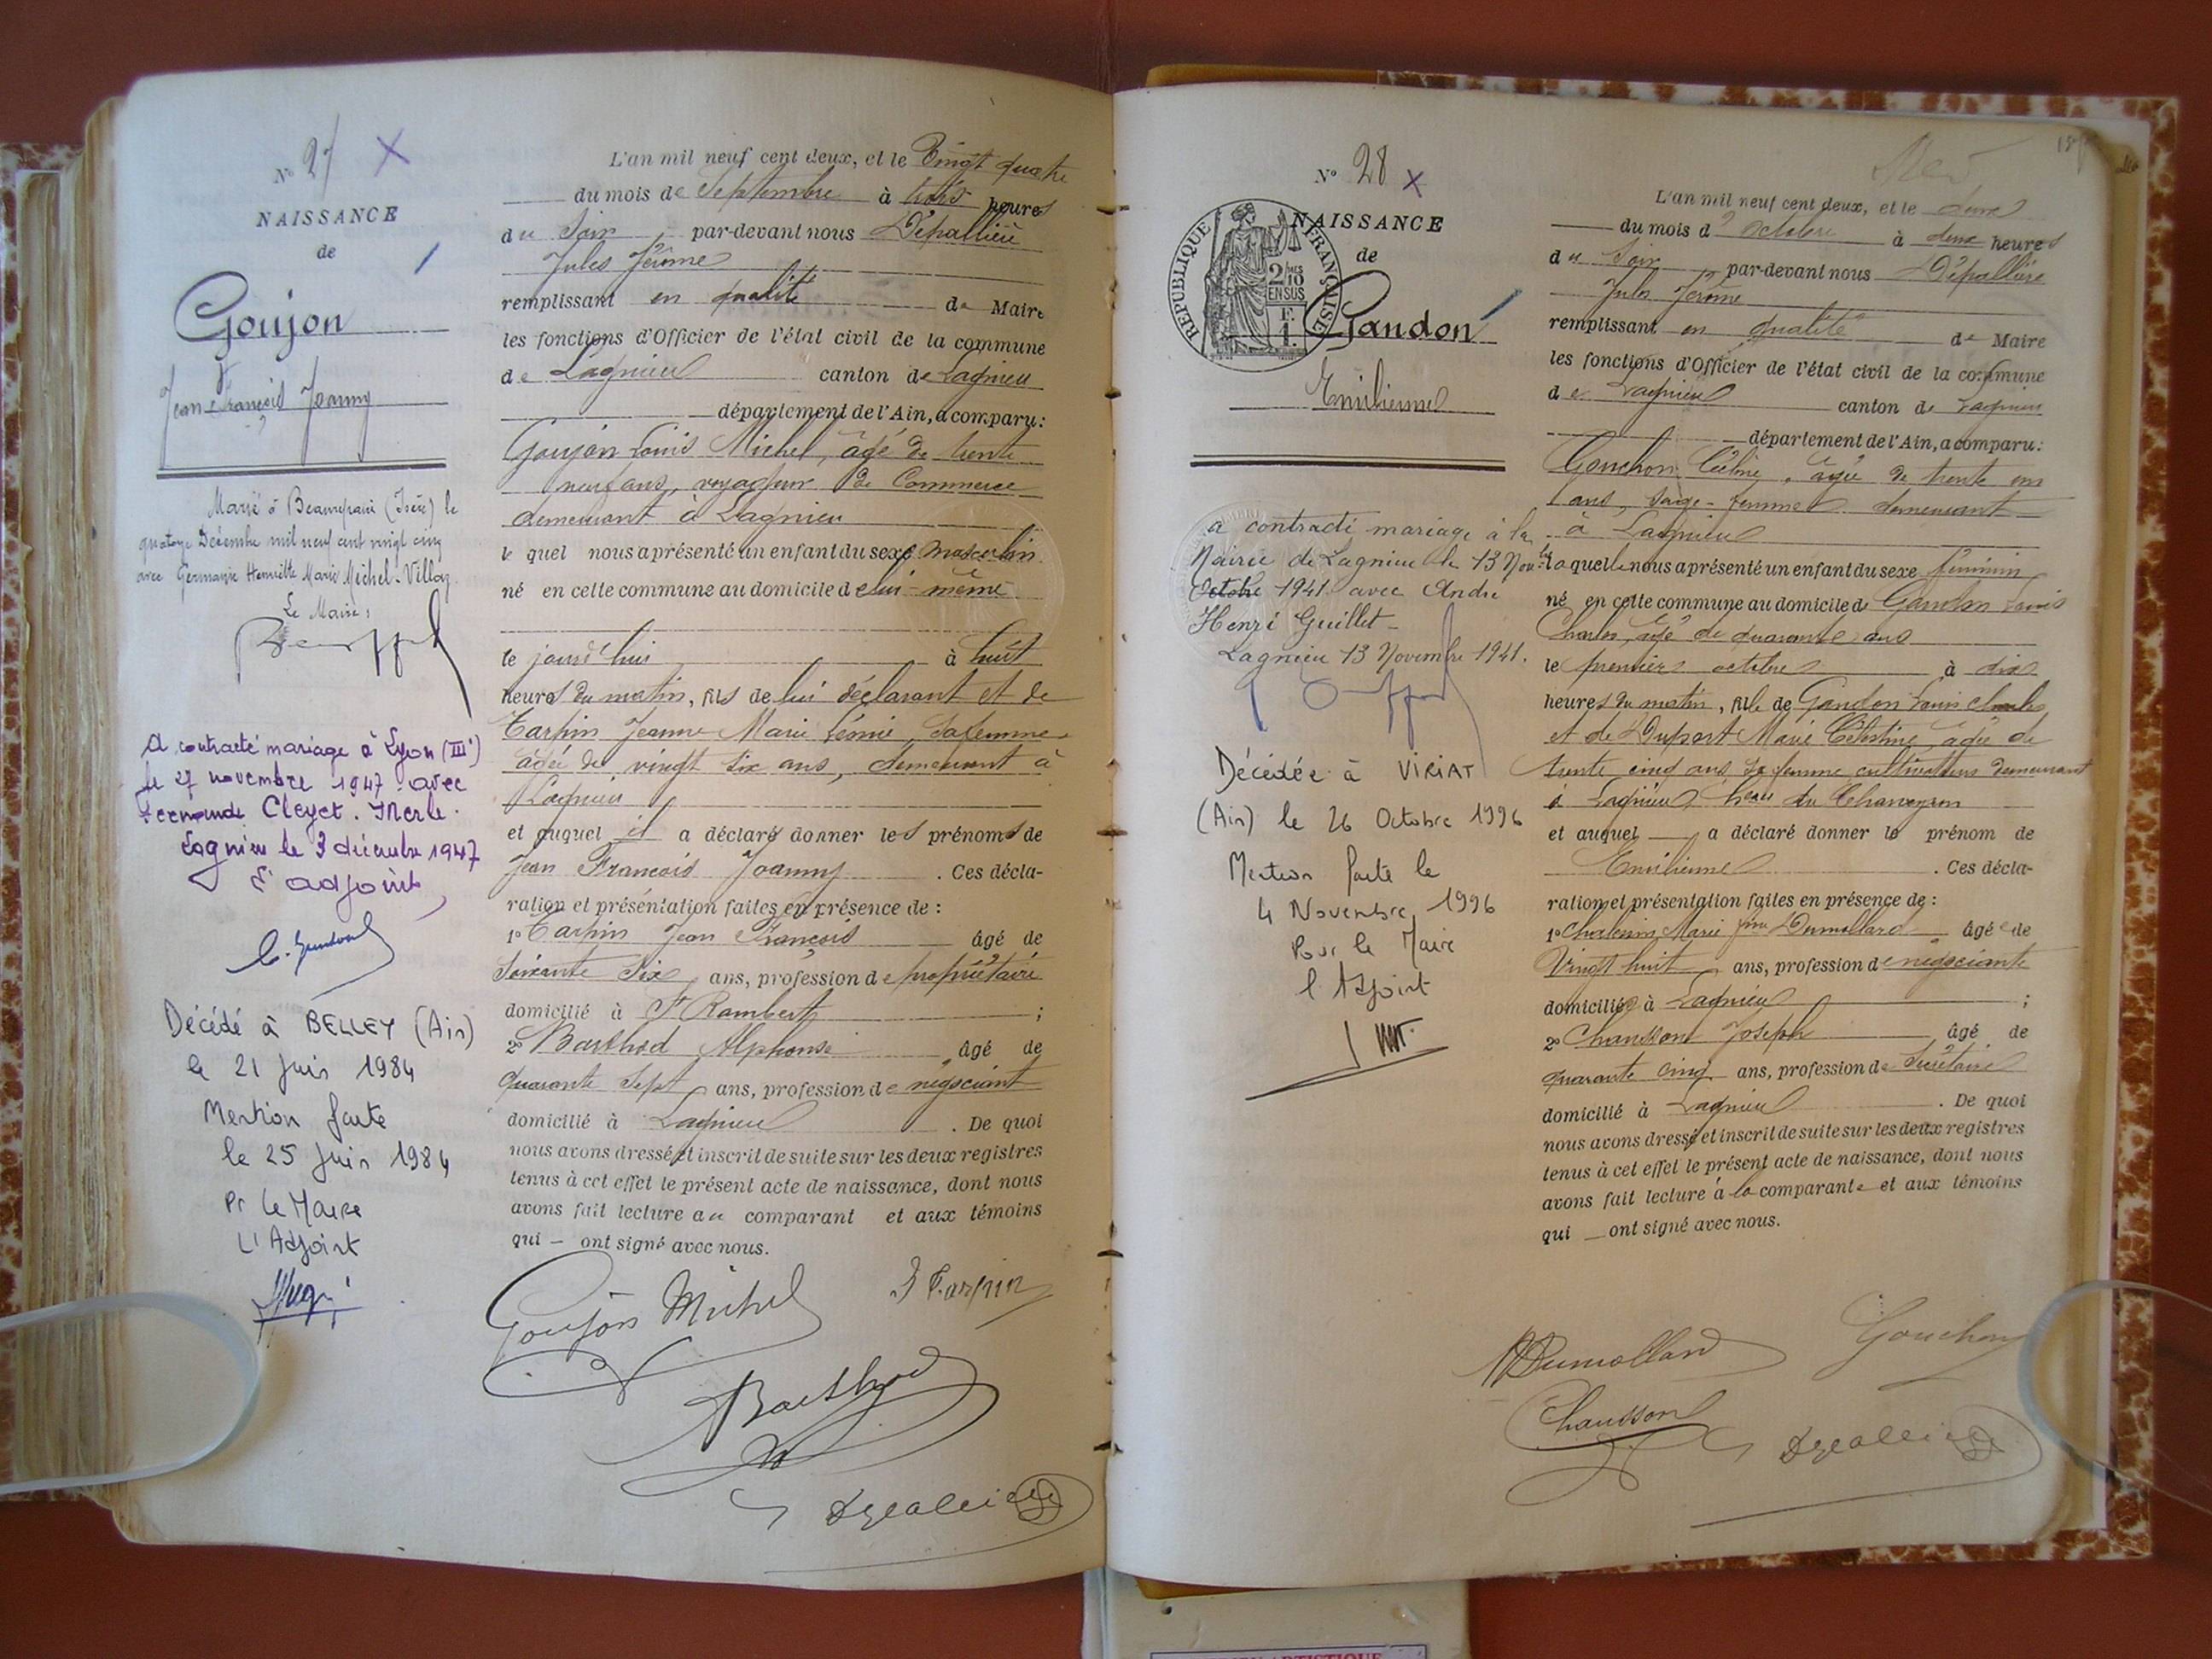 N° 27 X
NAISSANCE
de
Goujon
Jean François Joanny
Marié à Beaurepaire (Isère) le
quatorze Décembre mil neuf cent vingt cinq
avec Germaine Henriette Marie Michel-Villaz
Le Maire,
A contracté mariage à Lyon (III)
le 27 novembre 1947 avec
Fernande Cleyet-Merle.
Lagnieu le 3 décembre 1947
L'adjoint,
Décédé à BELLEY (Ain)
le 21 Juin 1984
Mention faite
le 25 Juin 1984
Pr Le Maire
L'Adjoint
L'an mil neuf cent deux, et le Vingt quatre
du mois de Septembre à trois heures
du Soir par-devant nous Dépallière
Jules Jérôme
remplissant en qualité de Maire
les fonctions d'Officier de l'état civil de la commune
de Lagnieu canton de Lagnieu
département de l'Ain, a comparu:
Goujon Louis Michel, âgé de trente
neuf ans, voyageur de Commerce
demeurant à Lagnieu
le quel nous a présenté un enfant du sexe masculin
né en cette commune au domicile de lui-même
le jourd'hui à huit
heures du matin, fils de lui déclarant et de
Tarpin Jeanne Marie Léonie, Sa femme
âgée de vingt six ans, demeurant à
Lagnieu
et auquel il a déclaré donner les prénoms de
Jean François Joanny . Ces décla-
ration et présentation faites en présence de :
1° Tarpin Jean François âgé de
Soixante Six ans, profession de propriétaire
domicilié à St Rambert ;
2° Barthod Alphonse âgé de
quarante Sept ans, profession de négociant
domicilié à Lagnieu . De quoi
nous avons dressé et inscrit de suite sur les deux registres
tenus à cet effet le présent acte de naissance, dont nous
avons fait lecture au comparant et aux témoins
qui — ont signé avec nous.
Goujon Michel J Tarpin
Barthod
Dépallière
N° 28 X
NAISSANCE
de
RÉPUBLIQUE FRANÇAISE
2/10 EN SUS
F. 1.
Gandon
Emilienne
a contracté mariage à la
Mairie de Lagnieu le 13 Nov-
Octobre 1941 avec André
Henri Guillet-
Lagnieu 13 Novembre 1941.
Décédée à VIRIAT
(Ain) le 26 Octobre 1996
Mention faite le
4 Novembre 1996
Pour le Maire
l'Adjoint
L'an mil neuf cent deux, et le deux
du mois d'octobre à deux heures
du Soir par-devant nous Dépallière
Jules Jérôme
remplissant en qualité de Maire
les fonctions d'Officier de l'état civil de la commune
de Lagnieu canton de Lagnieu
département de l'Ain, a comparu:
Gouchon Céline, âgée de trente ans
ans, Sage-femme demeurant
à Lagnieu
laquelle nous a présenté un enfant du sexe féminin
né en cette commune au domicile de Gandon Louis
Charles, âgé de quarante ans
le premier octobre à dix
heures du matin, fille de Gandon Louis Charles
et de Dupont Marie Célestine, âgée de
trente cinq ans, Sa femme cultivateurs demeurant
à Lagnieu, du Chaneyron
et auquel — a déclaré donner le prénom de
Emilienne . Ces décla-
ration et présentation faites en présence de :
1° Marie Dumollard âgée de
Vingt huit ans, profession de négociante
domiciliée à Lagnieu ;
2° Chausson Joseph âgé de
quarante cinq ans, profession de Secrétaire
domicilié à Lagnieu . De quoi
nous avons dressé et inscrit de suite sur les deux registres
tenus à cet effet le présent acte de naissance, dont nous
avons fait lecture à la comparante et aux témoins
qui — ont signé avec nous.
M Dumollard Gouchon
Chausson
Dépallière